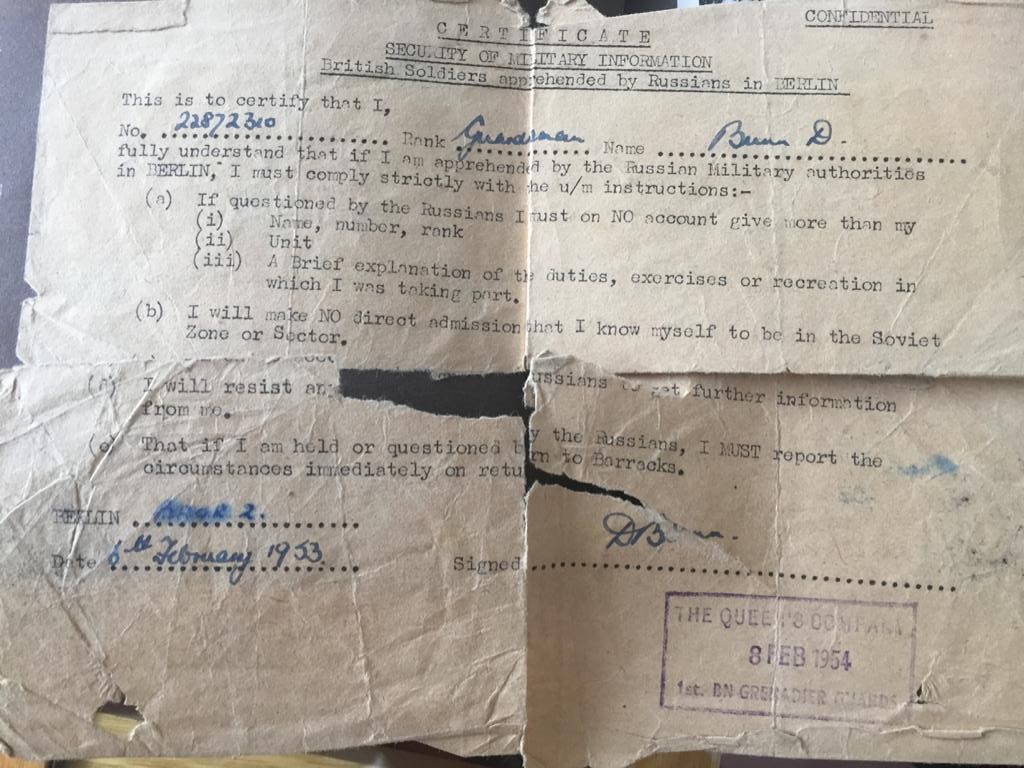 CONFIDENTIAL
CERTIFICATE
SECURITY OF MILITARY INFORMATION
British Soldiers apprehended by Russians in BERLIN
This is to certify that I,
No. 22872310 Rank Guardsman Name D.
fully understand that if I am apprehended by the Russian Military authorities
in BERLIN, I must comply strictly with he u/m instructions:-
(a) If questioned by the Russians I must on NO account give more than my
(i) Name, number, rank
(ii) Unit
(iii) A Brief explanation of the duties, exercises or recreation in
which I was taking part.
(b) I will make NO direct admission that I know myself to be in the Soviet
Zone or Sector.
I will resist any ussians to get further information
from me.
(e) That if I am held or questioned by the Russians, I MUST report the
circumstances immediately on return to Barracks.
BERLIN
Date 6th February 1953 Signed
THE QUEEN'S COMPANY
8 FEB 1954
1st. BN GRENADIER GUARDS